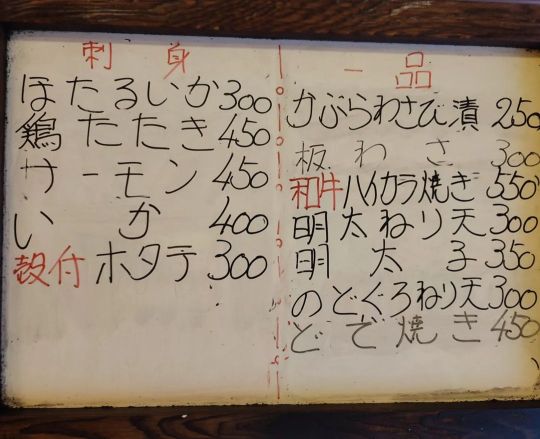 刺身
ほたるいか 300
鶏たたき 450
サーモン 450
いか 400
殻付ホタテ 300
一品
かぶらわさび漬 250
板わさ 300
和牛ハイカラ焼き 550
明太ねり天 300
明太子 350
のどぐろねり天 300
どて焼き 450